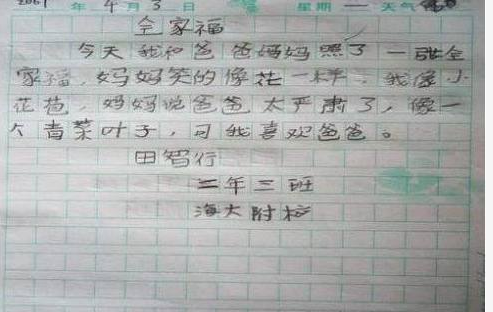 年 4 月 3 日 星期 一 天气
全家福
今天我和爸爸妈妈照了一张全
家福，妈妈笑的像花一样，我像小
花苞，妈妈说爸爸太严肃了，像一
个青菜叶子，可我喜欢爸爸。
田智行
二年三班
海大附校